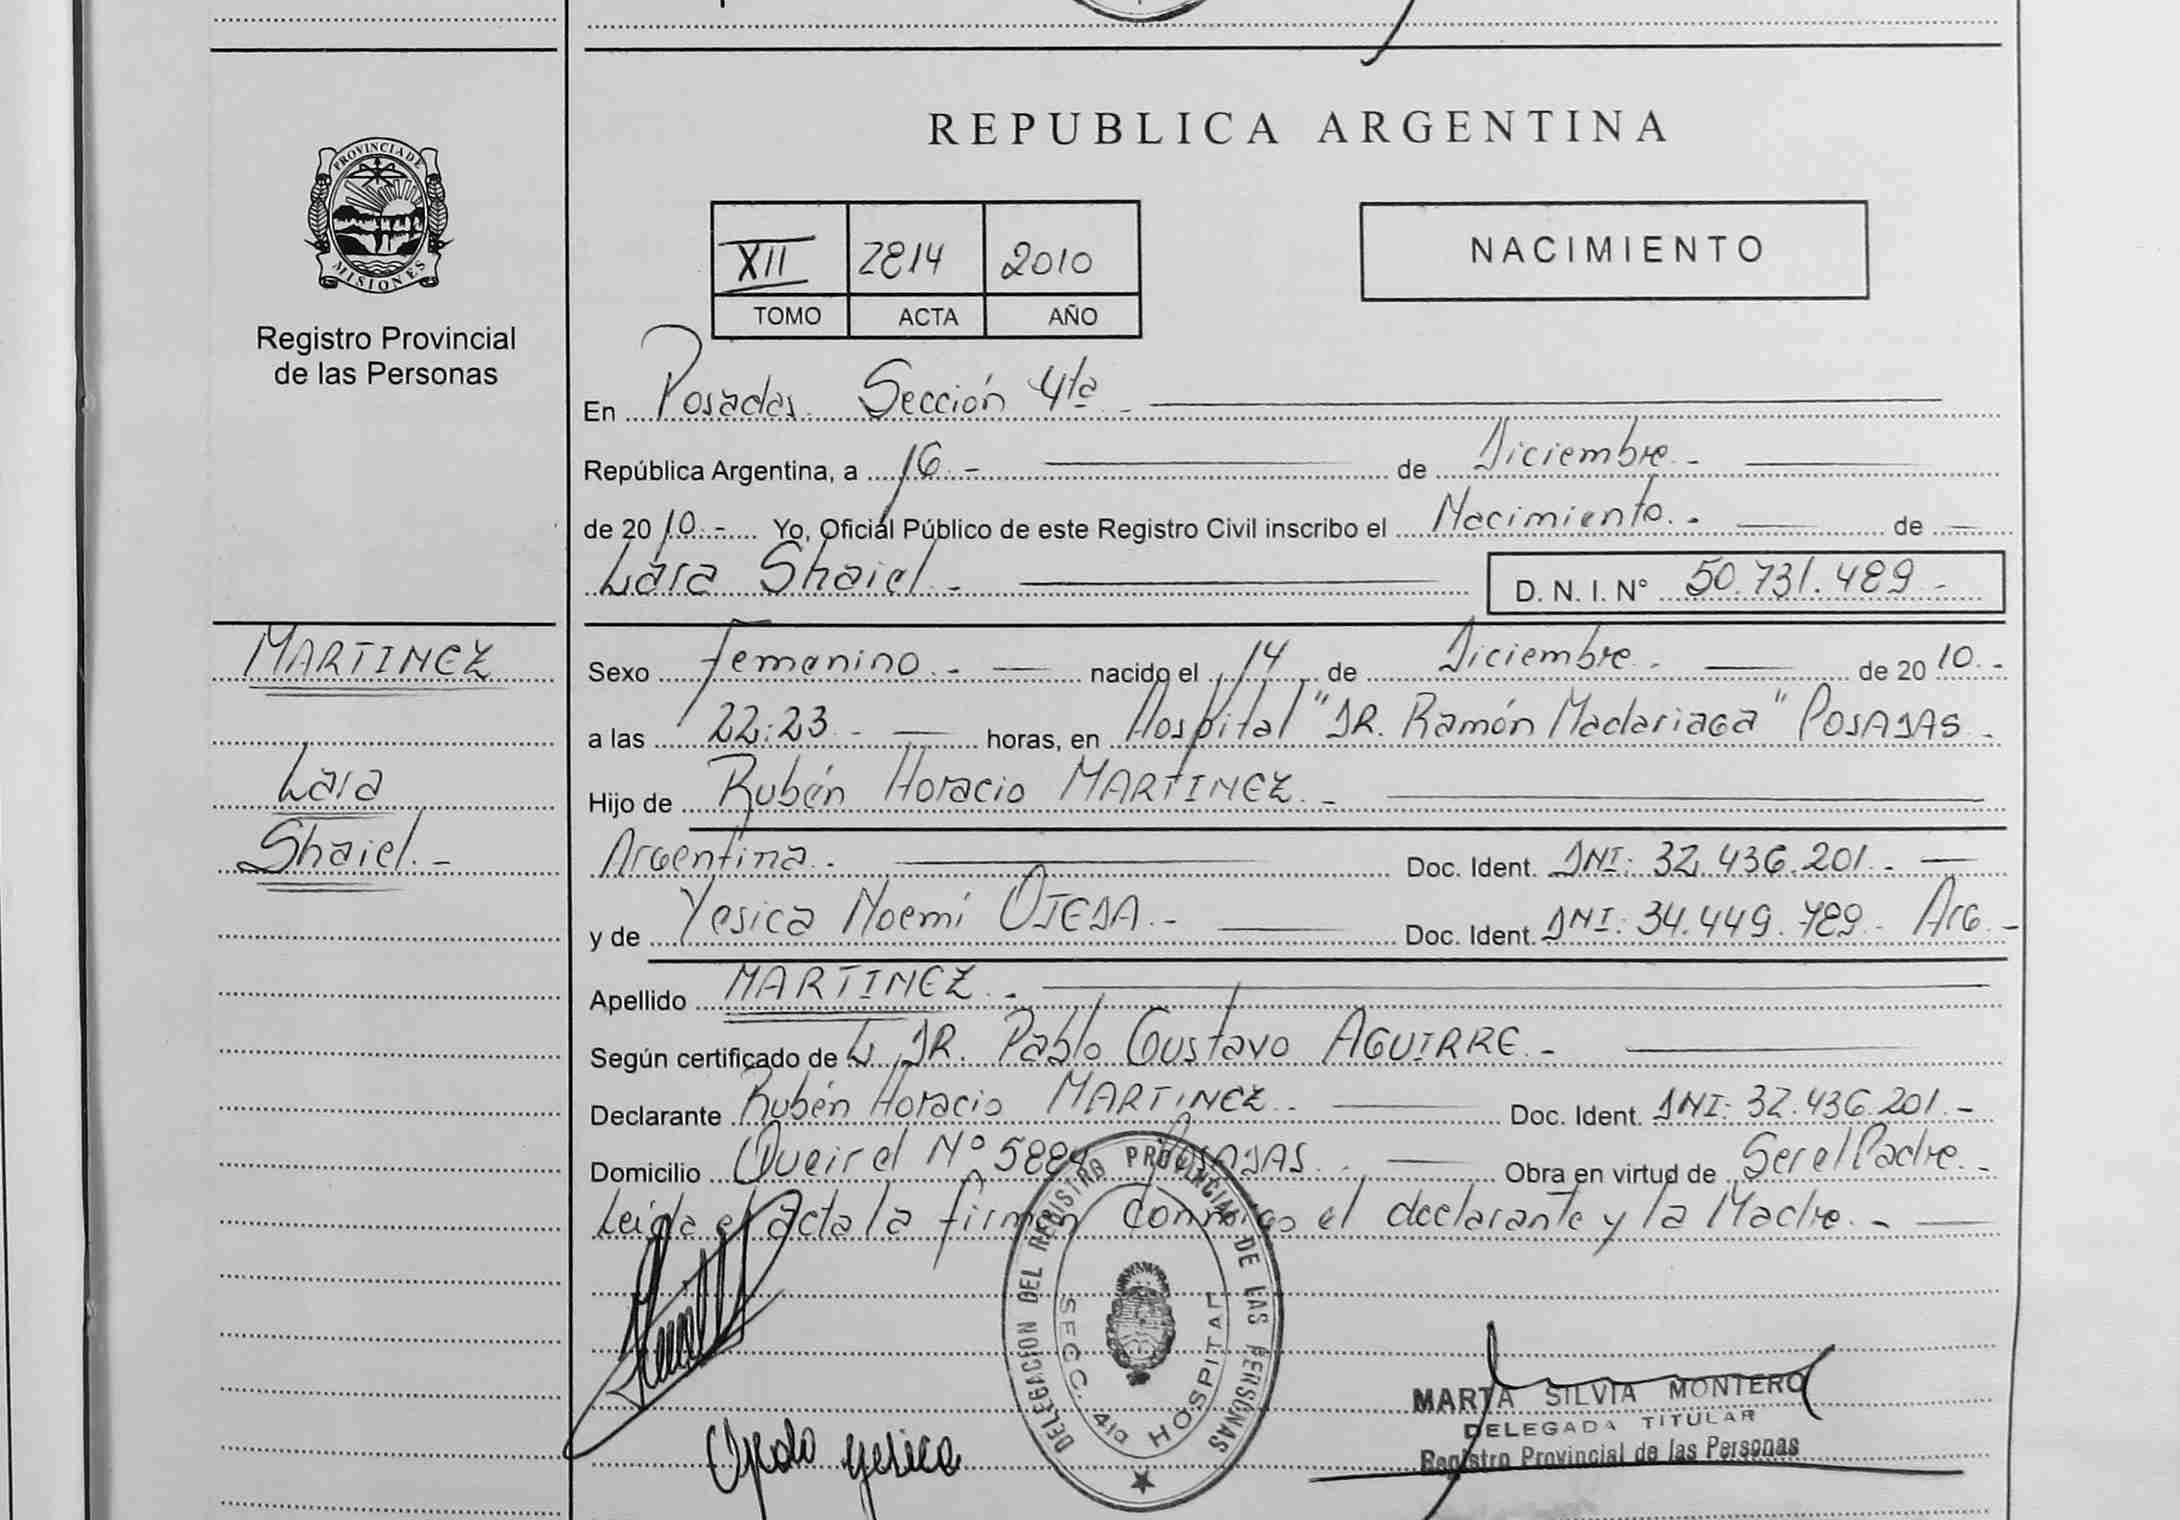 PROVINCIA DE
MISIONES
Registro Provincial
de las Personas
MARTINEZ
Lara
Shaiel.-
REPUBLICA ARGENTINA
XII 2814 2010
TOMO ACTA AÑO
NACIMIENTO
En Posadas. Sección 4ta.-
República Argentina, a 16.- de Diciembre.-
de 2010.- Yo, Oficial Público de este Registro Civil inscribo el Nacimiento.- de
Lara Shaiel.- D. N. I. N° 50.731.489.-
Sexo Femenino.- nacido el 14 de Diciembre.- de 2010.-
a las 22:23.- horas, en Hospital "DR. Ramón Madariaga" POSADAS.-
Hijo de Rubén Horacio MARTINEZ.-
Argentina.- Doc. Ident. DNI: 32.436.201.-
y de Yesica Noemí OJEDA.- Doc. Ident. DNI: 34.449.789.- Arg.-
Apellido MARTINEZ.-
Según certificado de DR. Pablo Gustavo AGUIRRE.-
Declarante Rubén Horacio MARTINEZ.- Doc. Ident. DNI: 32.436.201.-
Domicilio Queirel N° 5884 POSADAS.- Obra en virtud de Ser el Padre.-
Leida el acta la firman conmigo el declarante y la Madre.-
DELEGACION DEL REGISTRO PROVINCIAL DE LAS PERSONAS
SECC. 4ta HOSPITAL
Ojeda Yesica
MARTA SILVIA MONTERO
DELEGADA TITULAR
Registro Provincial de las Personas